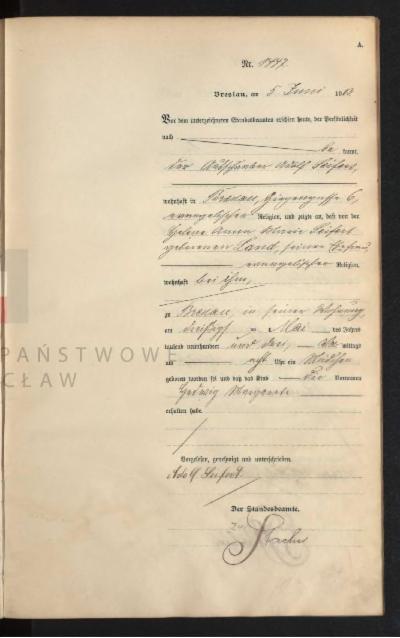 A.
Nr. 1447.
Breslau, am 5. Juni 1903.
Vor dem unterzeichneten Standesbeamten erschien heute, der Persönlichkeit
nach be kannt,
der Adolf Seifert,
wohnhaft in Breslau, 6,
evangelischer Religion, und zeigte an, daß von der
Helene Anna Marie Seifert
geborenen Land, seiner Ehefrau,
evangelischer Religion,
wohnhaft bei ihm,
zu Breslau, in seiner Wohnung,
am Mai des Jahres
tausend neunhundert und drei, mittags
um acht Uhr ein Mädchen
geboren worden sei und daß das Kind die Vornamen
Hedwig Margarete
erhalten habe.
PAŃSTWOWE
CŁAW
Vorgelesen, genehmigt und unterschrieben.
Adolf Seifert
Der Standesbeamte.